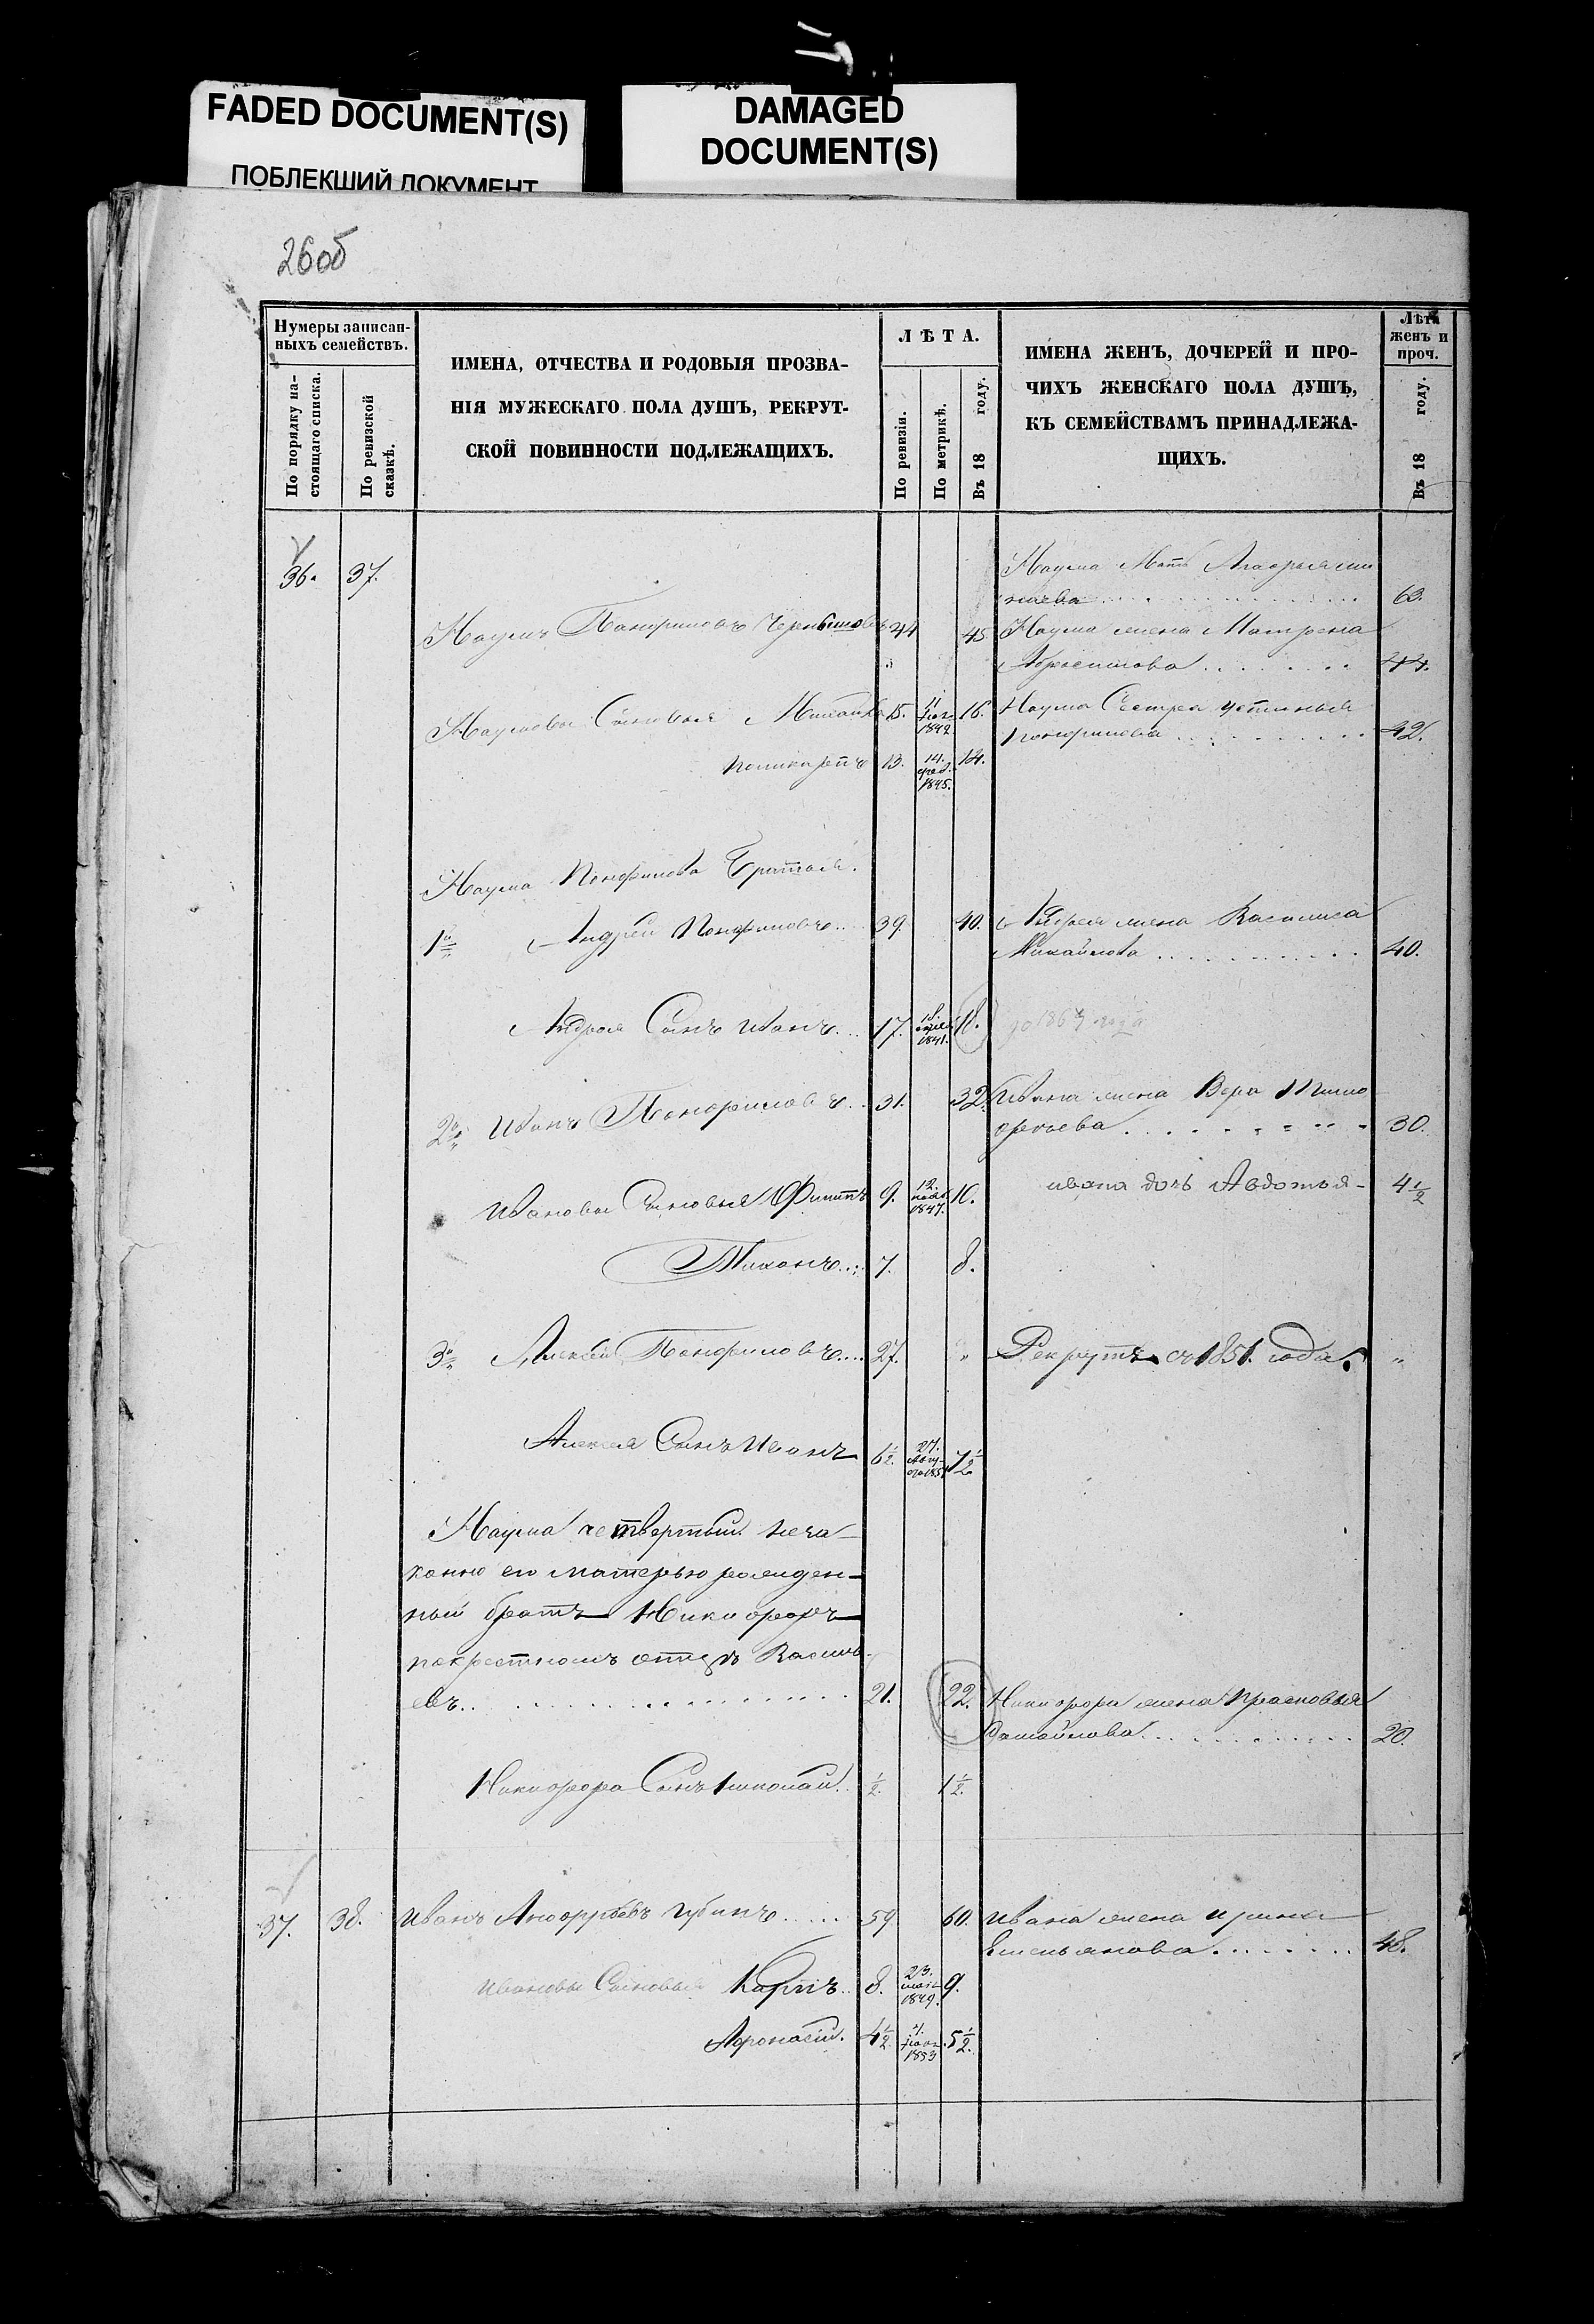 FADED DOCUMENT(S)
ПОБЛЕКШИЙ ДОКУМЕНТ
DAMAGED
DOCUMENT(S)
26об
Нумеры записан-
ныхъ семействъ.
По порядку на-
стоящаго списка.
По ревизской
сказкѣ.
ИМЕНА, ОТЧЕСТВА И РОДОВЫЯ ПРОЗВА-
НІЯ МУЖЕСКАГО ПОЛА ДУШЪ, РЕКРУТ-
СКОЙ ПОВИННОСТИ ПОДЛЕЖАЩИХЪ.
ЛѢТА.
По ревизіи.
По метрикѣ.
Въ 18 году.
ИМЕНА ЖЕНЪ, ДОЧЕРЕЙ И ПРО-
ЧИХЪ ЖЕНСКАГО ПОЛА ДУШЪ,
КЪ СЕМЕЙСТВАМЪ ПРИНАДЛЕЖА-
ЩИХЪ.
Лѣта
женъ и
проч.
Въ 18 году.
36. 37.
Наума Мать
63.
Наумъ Панфиловъ Чернышовъ 44 45 Наума жена Матрена
44.
Наумовы Сыновья Михайла 15. 11 1842 16. Наума Сестра Устинья
Понфилова 42.
Поликарпъ 13. 14. фев. 1845. 14.
Наума Понфилова Братья.
1й Андрей Понфиловъ 39. 40. Андрея жена Василиса
Михайлова 40.
Андрея Сынъ Иванъ 17. 18. 1841. 18. до 186 года
2й Иванъ Понфиловъ 31. 32. Ивана жена Вера Тимо
феева 30.
Ивановы Сыновья Филипъ 9. 12. нояб 1847. 10. ивана дочь Авдотья 4 1/2
Тихонъ 7. 8.
3й Алексей Понфиловъ 27. " Рекрутъ съ 1851. года. "
Алексея Сынъ Иванъ 6 1/2. 27. Авгу- ста 1851 7 1/2
Наума четвертый неза-
конно его матерью рожден-
ный братъ Никифоръ
покрестному отцу Василь-
евъ 21. 22. Никифора жена Прасковья
Самойлова 20.
Никифора Сынъ Николай 1/2. 1 1/2.
37. 38. Иванъ Ануфріевъ Губинъ 59 60. Ивана жена Ирина
Емельянова 48.
Ивановы Сыновья Карпъ 8. 23. мая 1849. 9.
Афонасій. 4 1/2 1853 5 1/2.